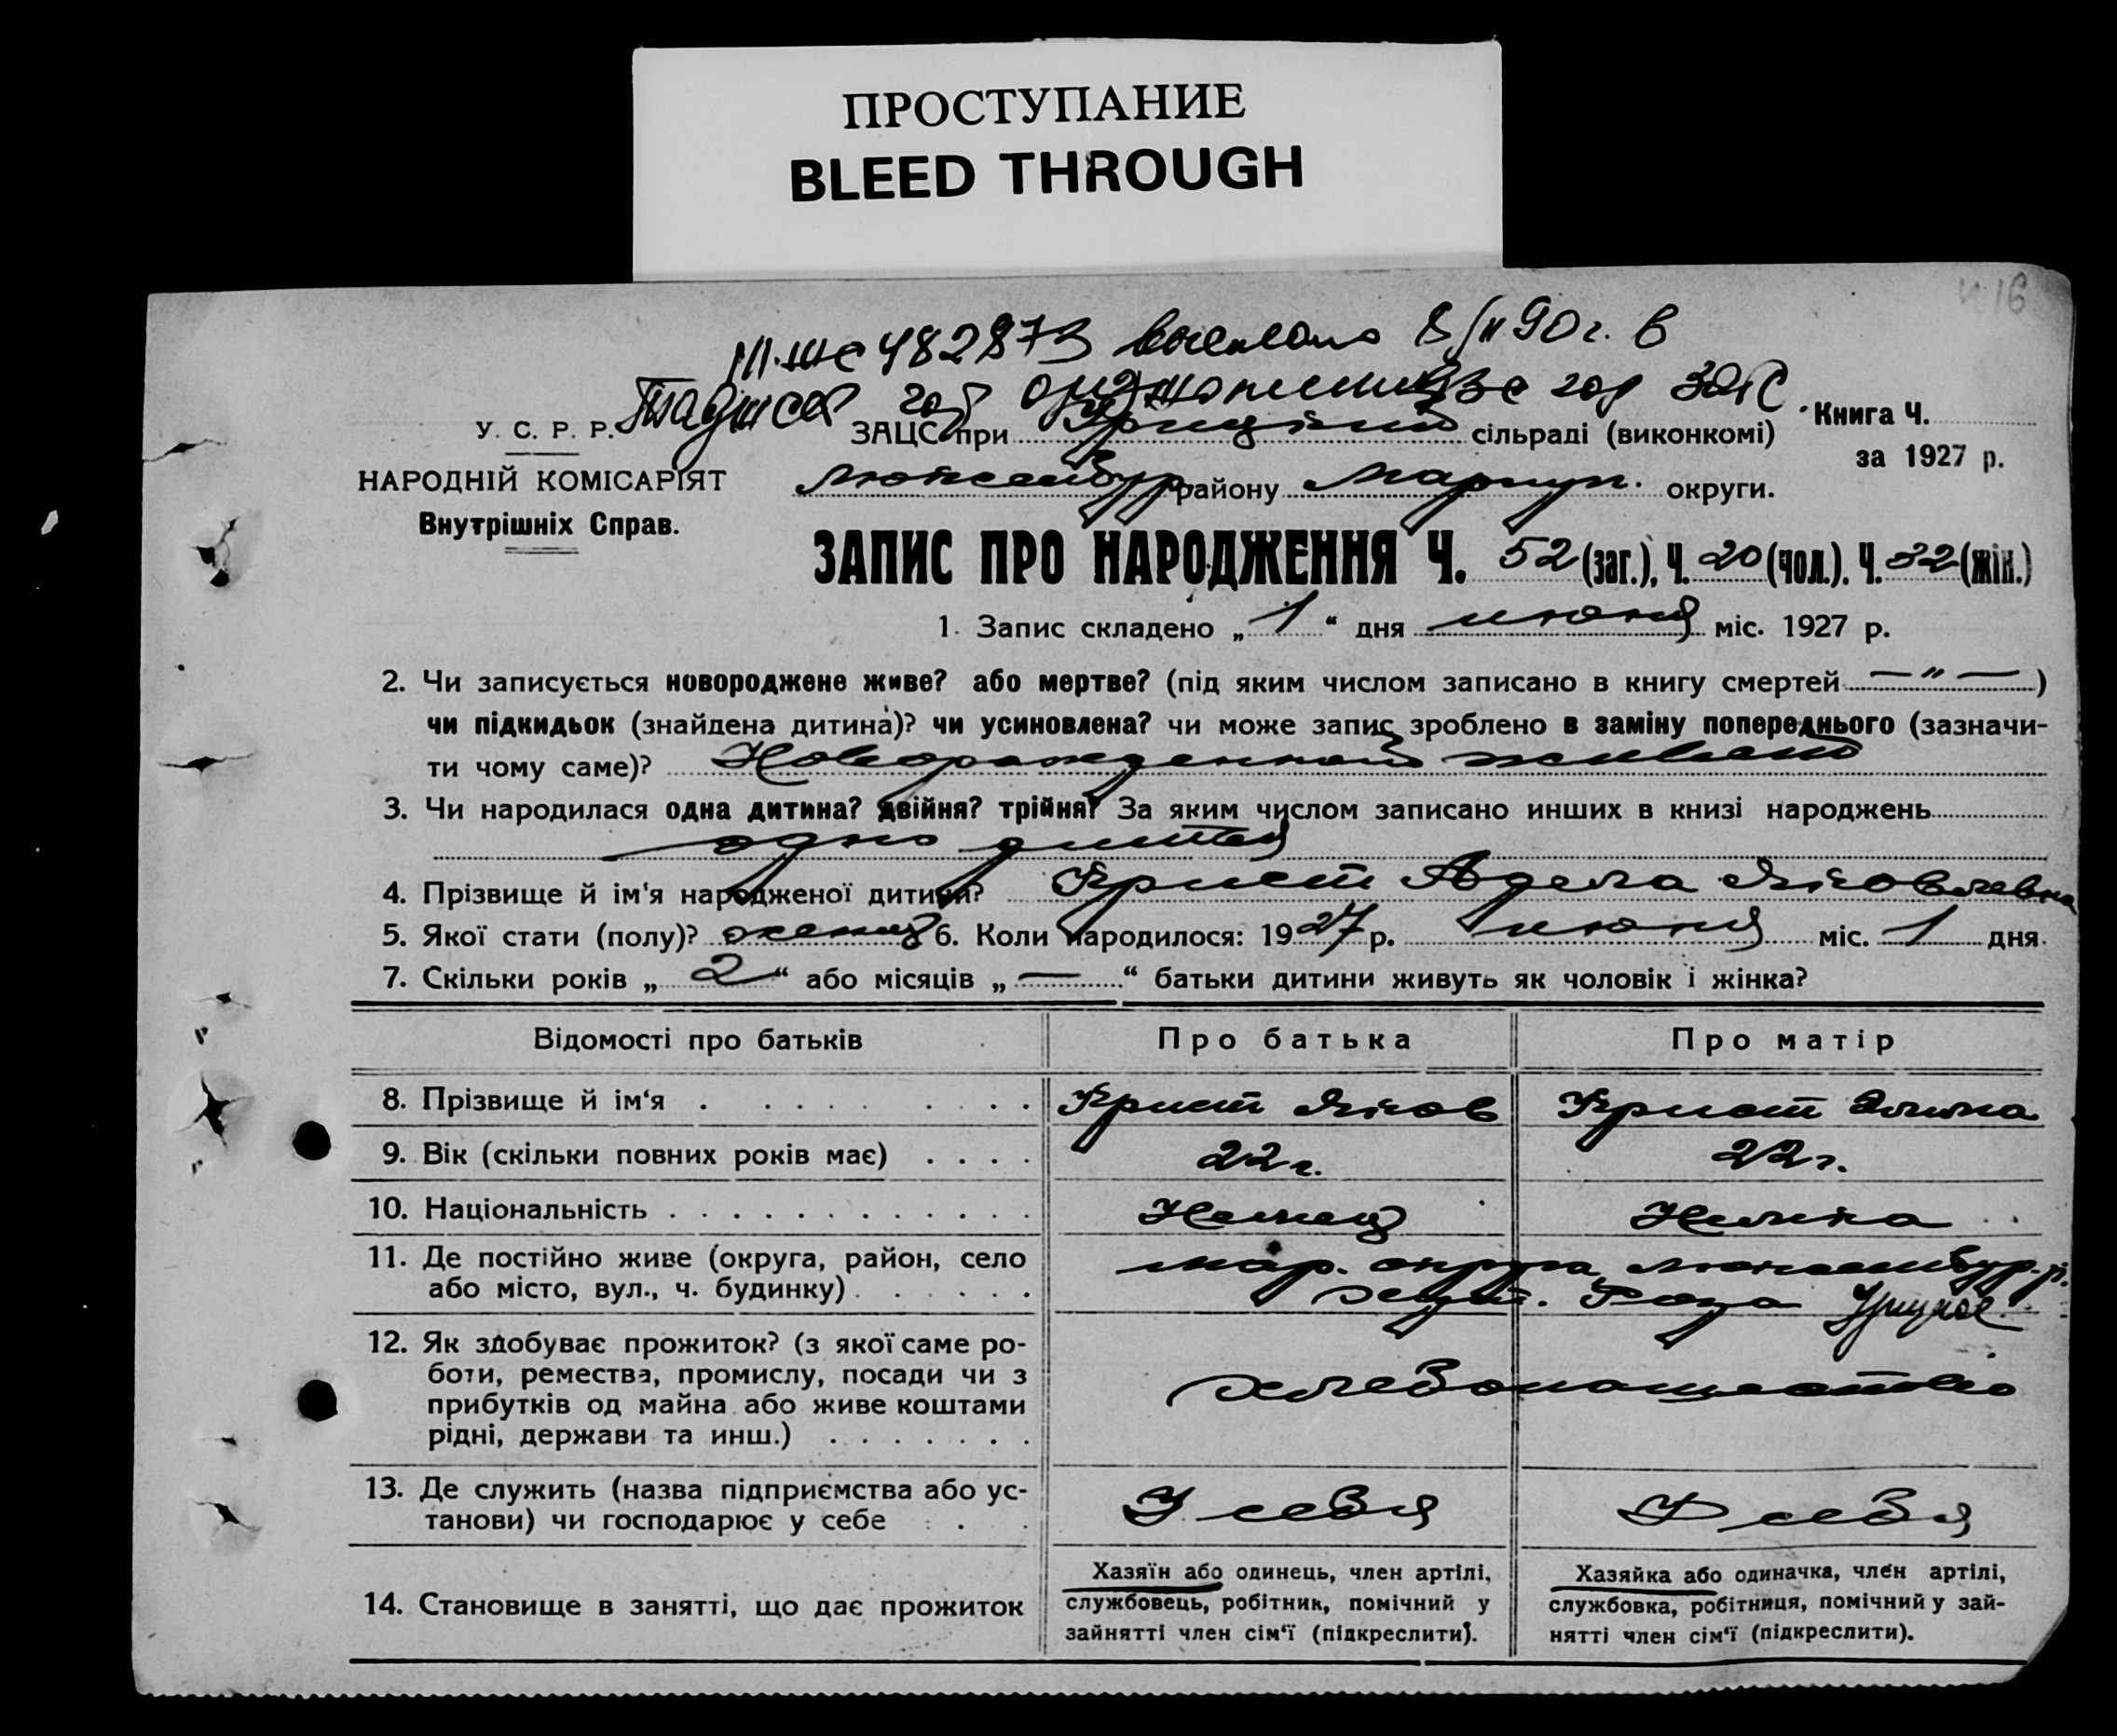 ПРОСТУПАНИЕ
BLEED THROUGH
482873 выслано 8/II 90 г. в
Таджик
У. С. Р. Р.
НАРОДНІЙ КОМІСАРІЯТ
Внутрішніх Справ.
ЗАЦС при сільраді (виконкомі)
Люксембур району Мариуп. округи.
Книга Ч.
за 1927 р.
ЗАПИС ПРО НАРОДЖЕННЯ Ч. 52 (заг.), Ч. 20 (чол.). Ч. 32 (жін.)
1. Запис складено „ 1 “ дня июня міс. 1927 р.
2. Чи записується новороджене живе? або мертве? (під яким числом записано в книгу смертей — " — )
чи підкидьок (знайдена дитина)? чи усиновлена? чи може запис зроблено в заміну попереднього (зазначи-
ти чому саме)?
3. Чи народилася одна дитина? двійня? трійня? За яким числом записано инших в книзі народжень
одно дитя
4. Прізвище й ім‘я народженої дитини? Крист Адела Яковлевна
5. Якої стати (полу)? 6. Коли народилося: 1927 р. июня міс. 1 дня.
7. Скільки років „ 2 “ або місяців „ — “ батьки дитини живуть як чоловік і жінка?
Відомості про батьків Про батька Про матір
8. Прізвище й ім‘я Крист Яков Крист
9. Вік (скільки повних років має) 22 г. 22 г.
10. Національність Немец Немка
11. Де постійно живе (округа, район, село
або місто, вул., ч. будинку)
Мар. округа, Люксембур. р.
12. Як здобуває прожиток? (з якої саме ро-
боти, ремества, промислу, посади чи з
прибутків од майна або живе коштами
рідні, держави та инш.)
хлебопашество
13. Де служить (назва підприємства або ус-
танови) чи господарює у себе
У себя У себя
14. Становище в занятті, що дає прожиток
Хазяїн або одинець, член артілі,
службовець, робітник, помічний у
зайнятті член сім‘ї (підкреслити).
Хазяйка або одиначка, член артілі,
службовка, робітниця, помічний у зай-
нятті член сім‘ї (підкреслити).